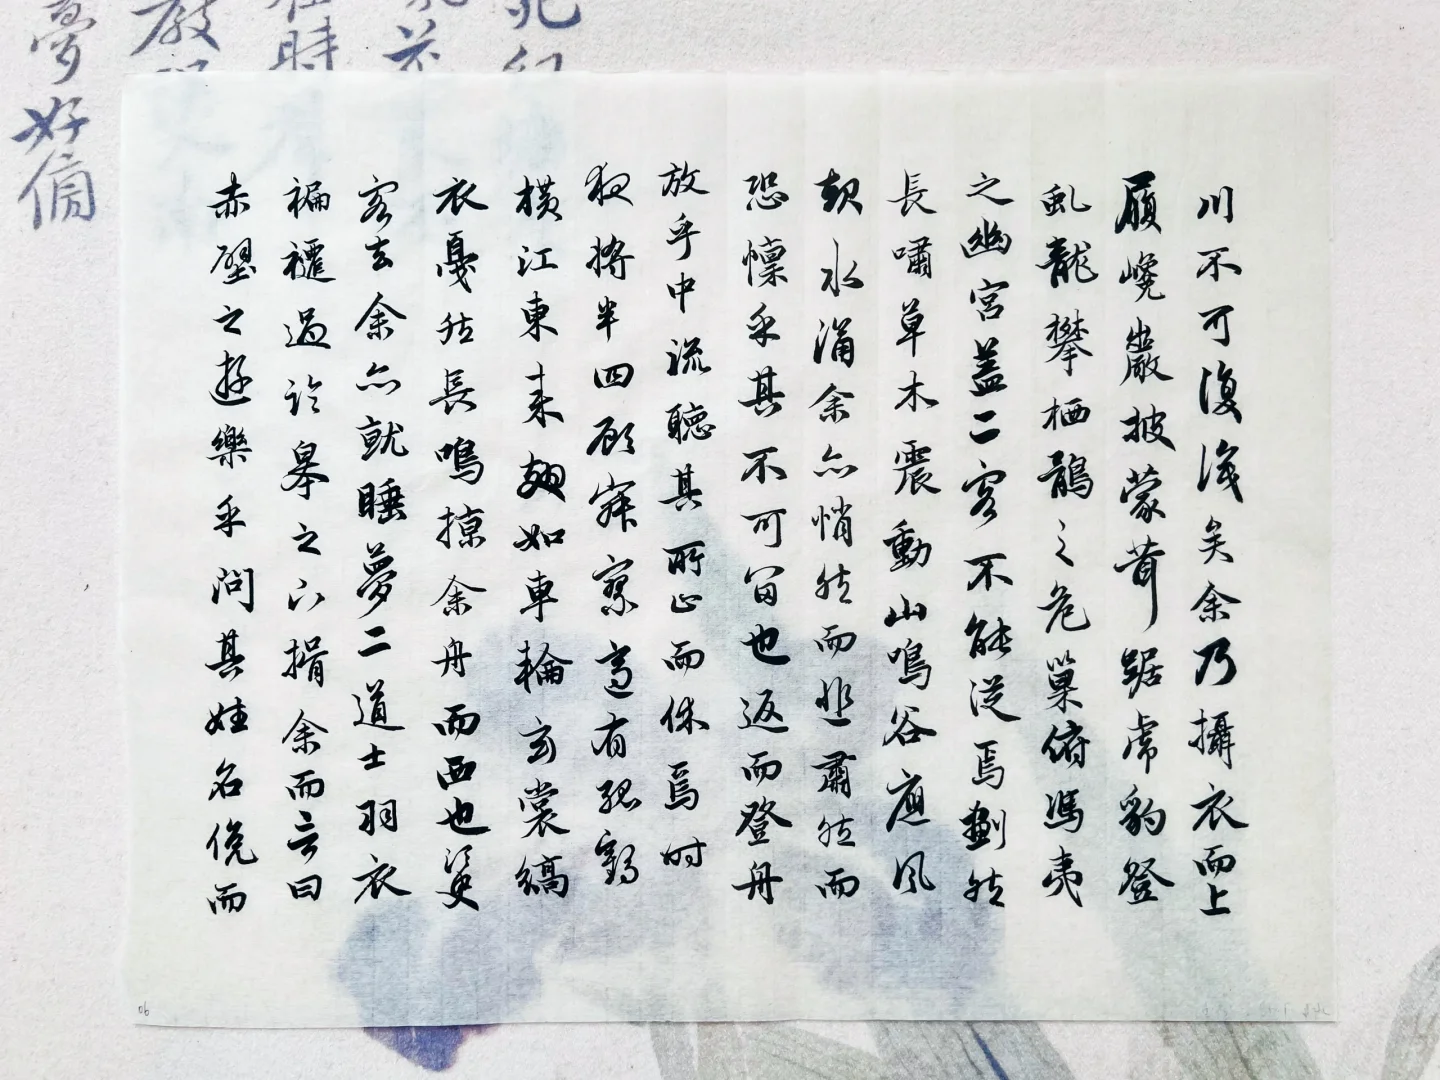 川不可復識矣余乃攝衣而上
履巉巖披蒙茸踞虎豹登
虬龍攀栖鶻之危巢俯馮夷
之幽宮蓋二客不能從焉劃然
長嘯草木震動山鳴谷應風
起水涌余亦悄然而悲肅然而
恐懍乎其不可留也返而登舟
放乎中流聽其所止而休焉時
夜將半四顧寂寥適有孤鶴
橫江東來翅如車輪玄裳縞
衣戛然長鳴掠余舟而西也須臾
客去余亦就睡夢二道士羽衣
褊褼過臨皋之下揖余而言曰
赤壁之遊樂乎問其姓名俛而
時
教
夢好脩
06